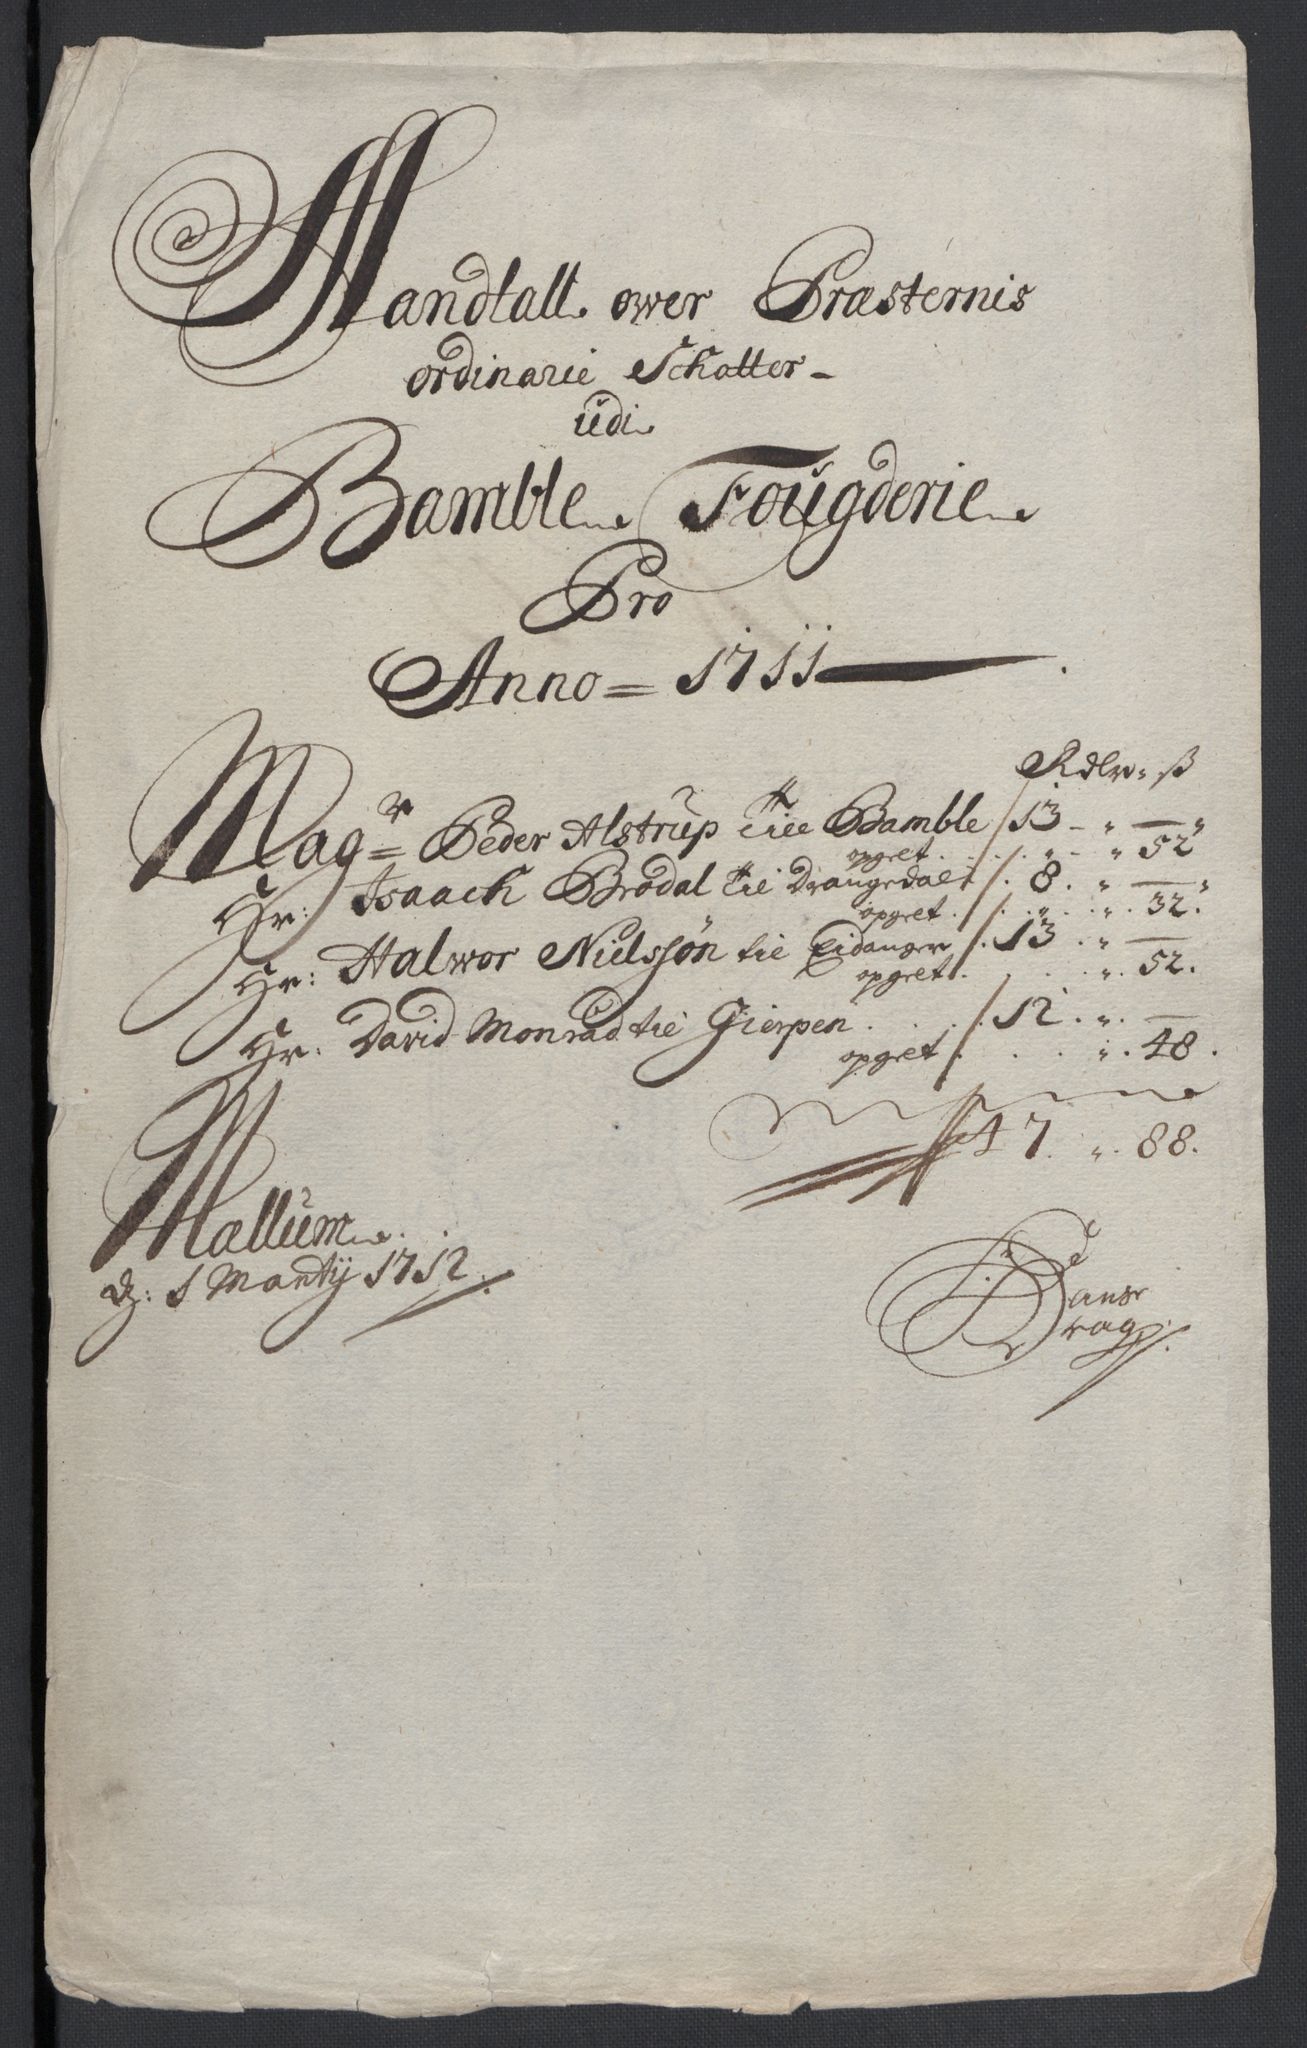 Mandtall over Præsternis
ordinarie Schatter -
udi
Bamble Fougderie
Pro
Anno = 1711
Rdlr. ß
Magr = Peder Alstrup till Bamble 13 - " —
opgelt . . . " - " 52 "
Hr: Isaach Brodal til Drangedal . 8 . " —
opgelt . . . " . " . 32 .
Hr: Halwor Nielssøn til Eidanger . 13 . " —
opgelt . . . " . 52 .
Hr: David Monrad til Gierpen . . . 12 . " . —
opgelt . . . " . 48 .
47 . " . 88 .
Mællum
d: 1 Martij 1712
Hans
Drag